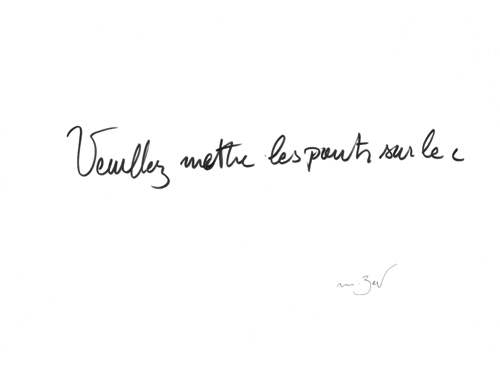 Veuillez mettre les points sur le c